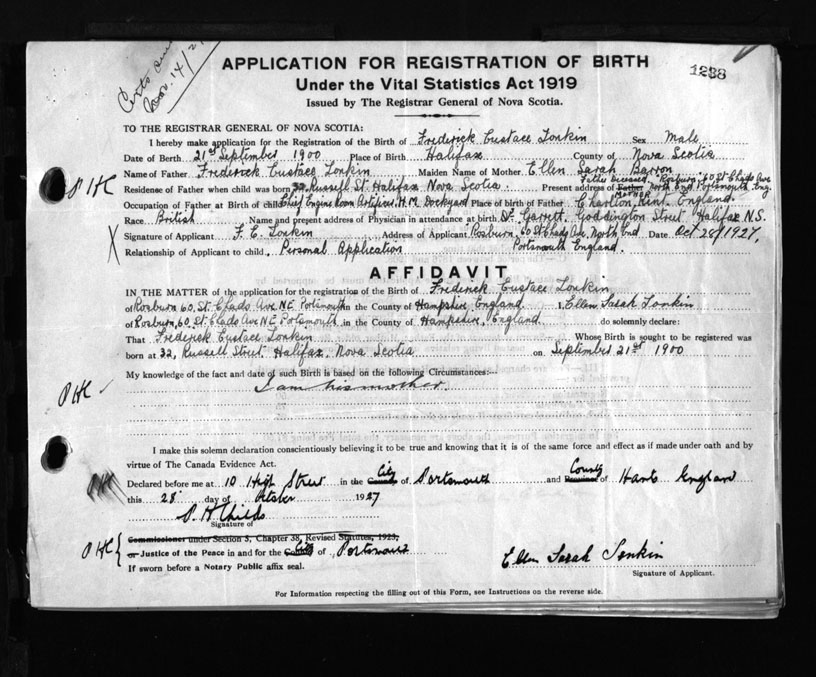 Certs
Nov. 14/27
APPLICATION FOR REGISTRATION OF BIRTH
1238
Under the Vital Statistics Act 1919
Issued by The Registrar General of Nova Scotia.
TO THE REGISTRAR GENERAL OF NOVA SCOTIA:
I hereby make application for the Registration of the Birth of Frederick Eustace Tonkin Sex Male
Date of Birth 21st September 1900 Place of Birth Halifax County of Nova Scotia
Name of Father Frederick Eustace Tonkin Maiden Name of Mother Ellen Sarah Barron
Father Deceased Rosburn, 60 St Chads Ave
Residense of Father when child was born 32, Russell St. Halifax Nova Scotia. Present address of Father Mother North End Portsmouth, Eng.
Occupation of Father at Birth of child Chief Engine Room Artificer, H.M. Dockyard Place of Birth of Father Charlton, Kent, England.
Race British Name and present address of Physician in attendance at birth Dr. Garrett, Goddington Street Halifax N.S.
Signature of Applicant F. E. Tonkin Address of Applicant Rosburn, 60 St Chads Ave, North End Date Oct 28/1927,
Relationship of Applicant to child, Personal Application Portsmouth England.
AFFIDAVIT
IN THE MATTER of the application for the registration of the Birth of Frederick Eustace Tonkin
of Rosburn 60, St. Chads Ave N.E. Portsmouth in the County of Hampshire, England I, Ellen Sarah Tonkin
of Rosburn, 60, St. Chads Ave N.E. Portsmouth in the County of Hampshire, England do solemnly declare:
That Frederick Eustace Tonkin Whose Birth is sought to be registered was
born at 32, Russell Street Halifax, Nova Scotia on September 21st 1900
My knowledge of the fact and date of such Birth is based on the following Circumstances:—
I am his mother.
I make this solemn declaration conscientiously believing it to be true and knowing that it is of the same force and effect as if made under oath and by
virtue of The Canada Evidence Act.
Declared before me at 10 High Street in the County City of Portsmouth and Province County of Hants England
this 28 day of October 1927
P. H. Childs
Signature of
Commissioner under Section 5, Chapter 38, Revised Statutes, 1923,
or Justice of the Peace in and for the County City of Portsmouth
If sworn before a Notary Public affix seal.
Ellen Sarah Tonkin
Signature of Applicant.
For Information respecting the filling out of this Form, see Instructions on the reverse side.